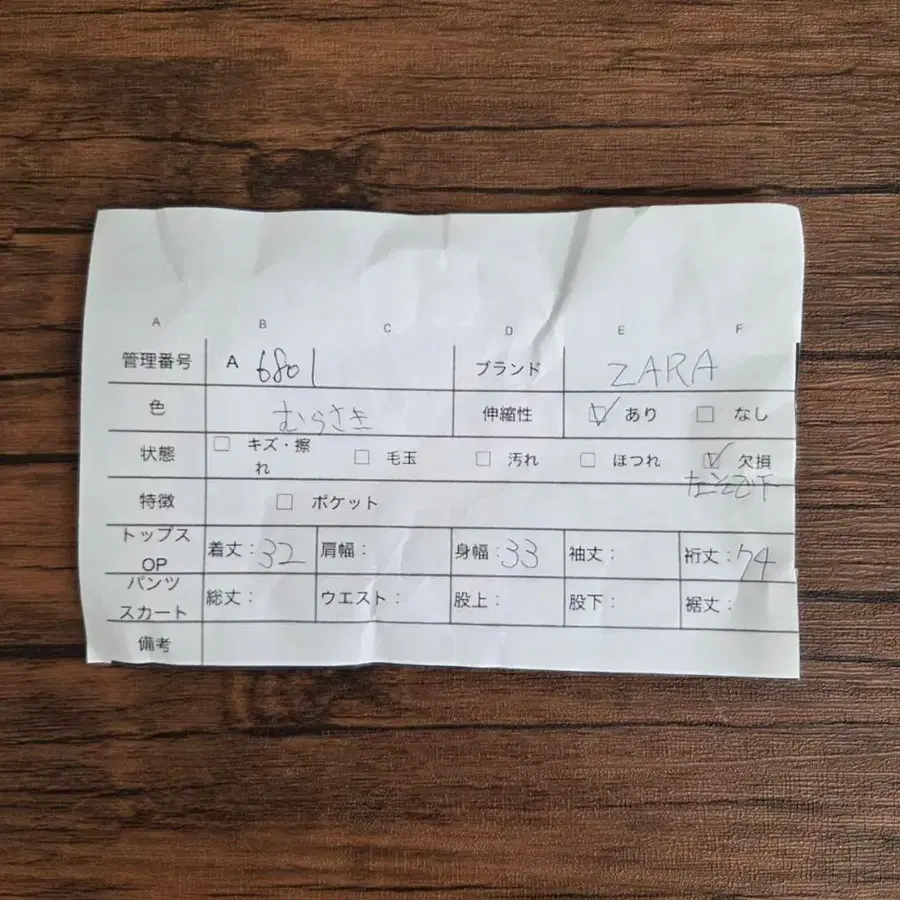 A B C D E F
管理番号 A 6801 ブランド ZARA
色 むらさき 伸縮性 ☑ あり ☐ なし
状態 ☐ キズ・擦れ ☐ 毛玉 ☐ 汚れ ☐ ほつれ ☑ 欠損
特徴 ☐ ポケット
トップス OP 着丈：32 肩幅： 身幅：33 袖丈： 裄丈：74
パンツ スカート 総丈： ウエスト： 股上： 股下： 裾丈：
備考